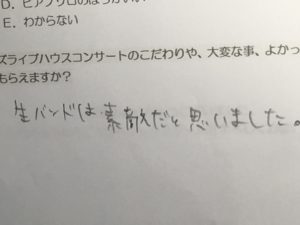 D. ピアノソロのほうがいい
E. わからない
ズライブハウスコンサートのこだわりや、大変な事、よかっ
もらえますか？
生バンドは素敵だと思いました。